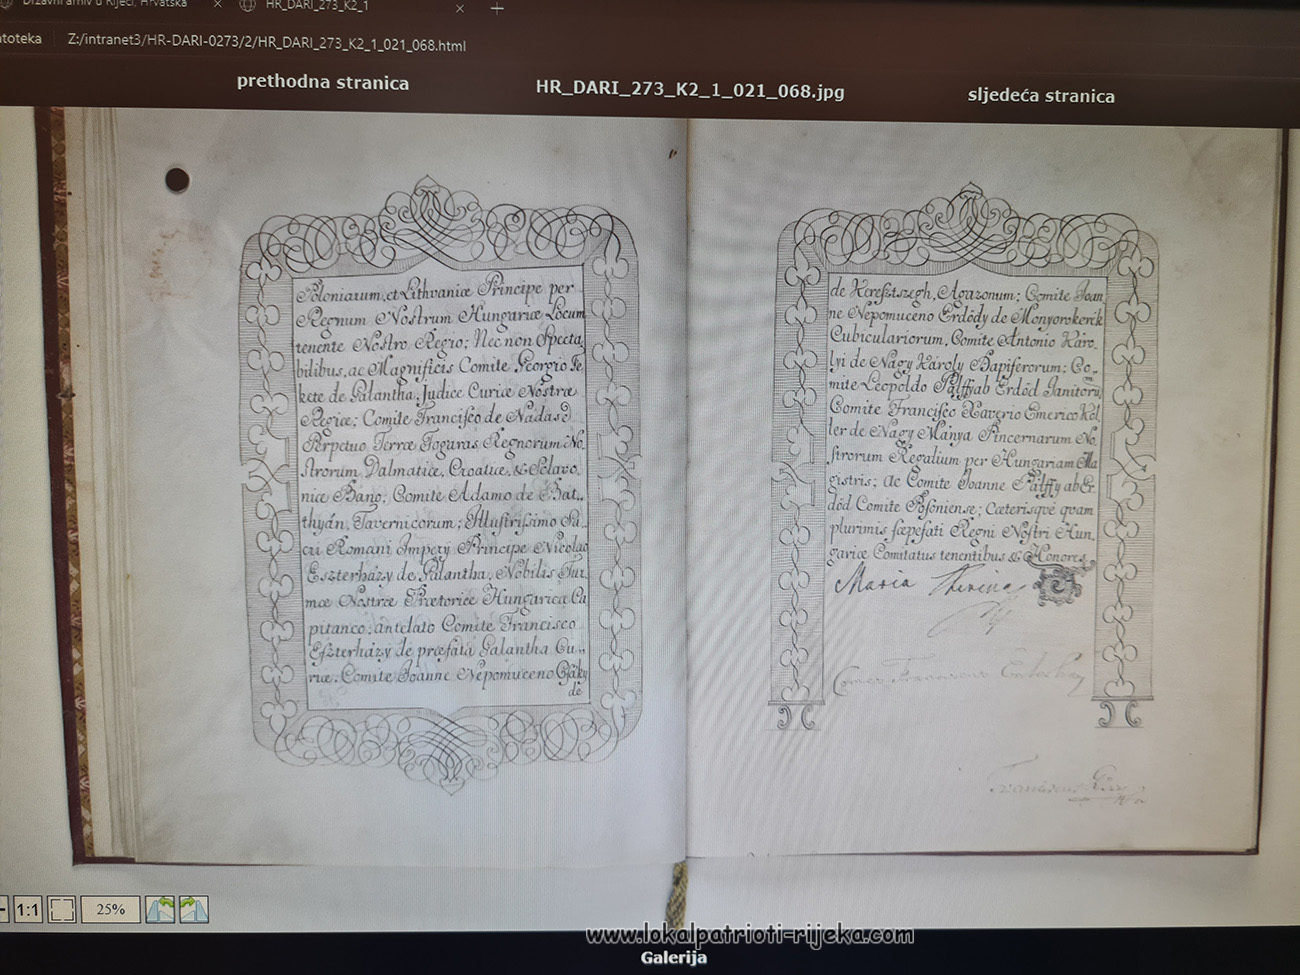 Državni arhiv u Rijeci, Hrvatska
HR_DARI_273_K2_1
atoteka Z:/intranet3/HR-DARI-0273/2/HR_DARI_273_K2_1_021_068.html
prethodna stranica HR_DARI_273_K2_1_021_068.jpg sljedeća stranica
Poloniarum, et Lithvaniæ Principe per
Regnum Nostrum Hungariæ Locum
tenente Nostro Regio; Nec non Specta,
bilibus, ac Magnificis Comite Georgio Fe,
kete de Galantha, Judice Curiæ Nostræ
Regiæ; Comite Francisco de Nadasd
Perpetuo Terræ Fogaras Regnorum No,
strorum Dalmatiæ, Croatiæ, & Sclavo,
niæ Bano; Comite Adamo de Bat,,
thyán, Tavernicorum; Illustrissimo Sa,
cri Romani Impery Principe Nicolao
Eszterházy de Galantha, Nobilis Tur,
mæ Nostræ Prætoriæ Hungarica Ca
pitaneo; antelato Comite Francisco
Eszterházy de præfata Galantha Cu,,
riæ, Comite Joanne Nepomuceno Csáky
de
de Keresztszegh, Agazonum; Comite Joan
ne Nepomuceno Erdődy de Monyorokerék
Cubiculariorum, Comite Antonio Káro,
lyi de Nagy Károly Dapiferorum; Co,,
mite Leopoldo Pálffy ab Erdőd Janitorū,
Comite Francisco Xaverio Emerico Kol,
ler de Nagy Mánya Pincernarum No,
strorum Regalium per Hungariam Ma
gistris; ac Comite Joanne Pálffy ab Er,
dőd Comite Posoniense; Cæterisqve qvam
plurimis sæpefati Regni Nostri Hun,
gariæ Comitatus tenentibus & Honores.
Maria Theresia
Comes Franciscus Eszterházy
Franciscus
1:1
25%
www.lokalpatrioti-rijeka.com
Galerija